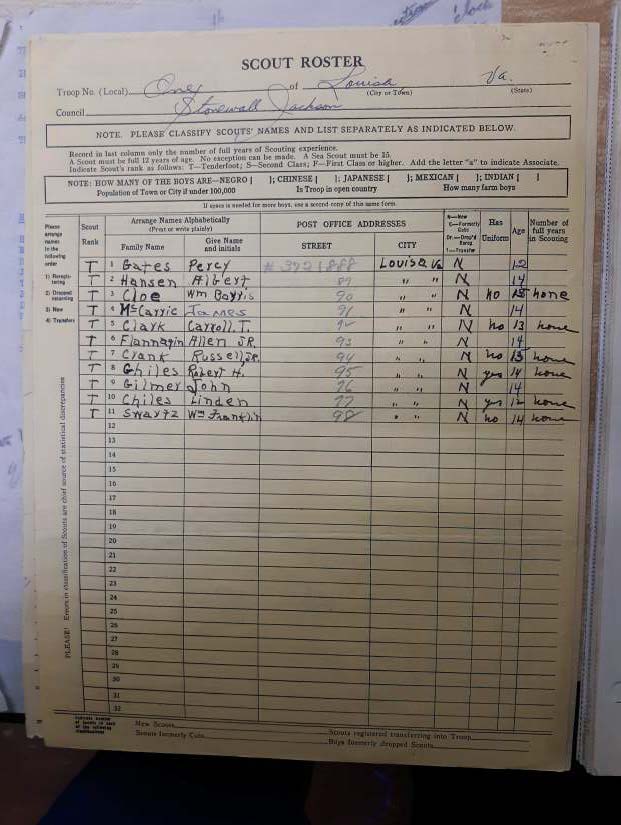 SCOUT ROSTER
Troop No. (Local) One of Louisa Va.
(City or Town) (State)
Council Stonewall Jackson
NOTE. PLEASE CLASSIFY SCOUTS' NAMES AND LIST SEPARATELY AS INDICATED BELOW.
Record in last column only the number of full years of Scouting experience.
A Scout must be full 12 years of age. No exception can be made. A Sea Scout must be 15.
Indicate Scout's rank as follows: T—Tenderfoot; S—Second Class; F—First Class or higher. Add the letter "a" to indicate Associate.
NOTE: HOW MANY OF THE BOYS ARE—NEGRO [ ]; CHINESE [ ]; JAPANESE [ ]; MEXICAN [ ]; INDIAN [ ]
Population of Town or City if under 100,000 Is Troop in open country How many farm boys
If space is needed for more boys, use a second copy of this same form.
Please arrange names in the following order
1) Reregistering
2) Dropped returning
3) New
4) Transfers
Scout Rank
Arrange Names Alphabetically
(Print or write plainly)
Family Name Give Name and initials
POST OFFICE ADDRESSES
STREET CITY
N—New
C—Formerly Cubs
Dr.—Drop'd Rereg.
T—Transfer
Has Uniform
Age
Number of full years in Scouting
T 1 Gates Percy # 3921888 Louisa Va N 12
T 2 Hansen Albert 89 " " N 14
T 3 Cloe Wm 90 " " N no none
T 4 McCarric James 91 " " N 14
T 5 Clark Carroll. T. 92 " " N no 13 none
T 6 Flannagin Allen JR. 93 " " N 14
T 7 Crank Russell, JR. 94 " " N no 13 none
T 8 Ghiles Robert H. 95 " " N yes 14 none
T 9 Gilmer John 96 " " N 14
T 10 Chiles Linden 97 " " N yes 12 none
T 11 Swartz Wm Franklin 98 " " N no 14 none
12
13
14
15
16
17
18
19
20
21
22
23
24
25
26
27
28
29
30
31
32
PLEASE! Errors in classification of Scouts are chief source of statistical discrepancies
New Scouts
Scouts formerly Cubs
Scouts registered transferring into Troop
Boys formerly dropped Scouts